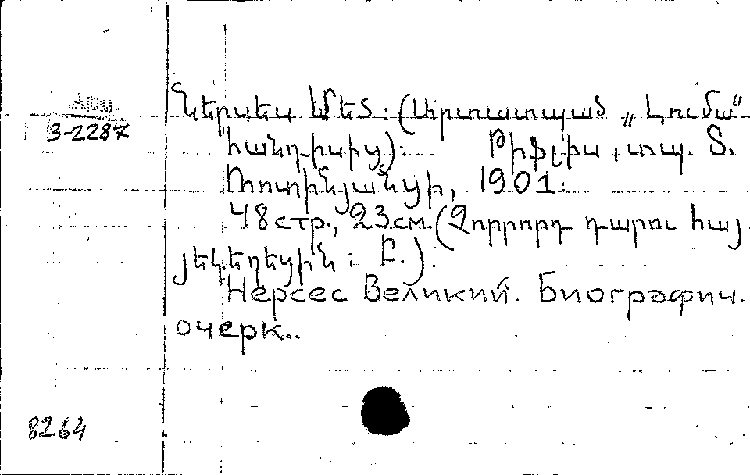 Ներսես Մեծ: (Արտատպած „Լումա"
3-2287
հանդիսից). Թիֆլիս, տպ. Տ.
Ռոտինյանցի, 1901.
48 стр., 23 см. (Չորրորդ դարու հայ
եկեղեցին: Բ.).
Нерсес Великий. Биографич.
очерк..
8264